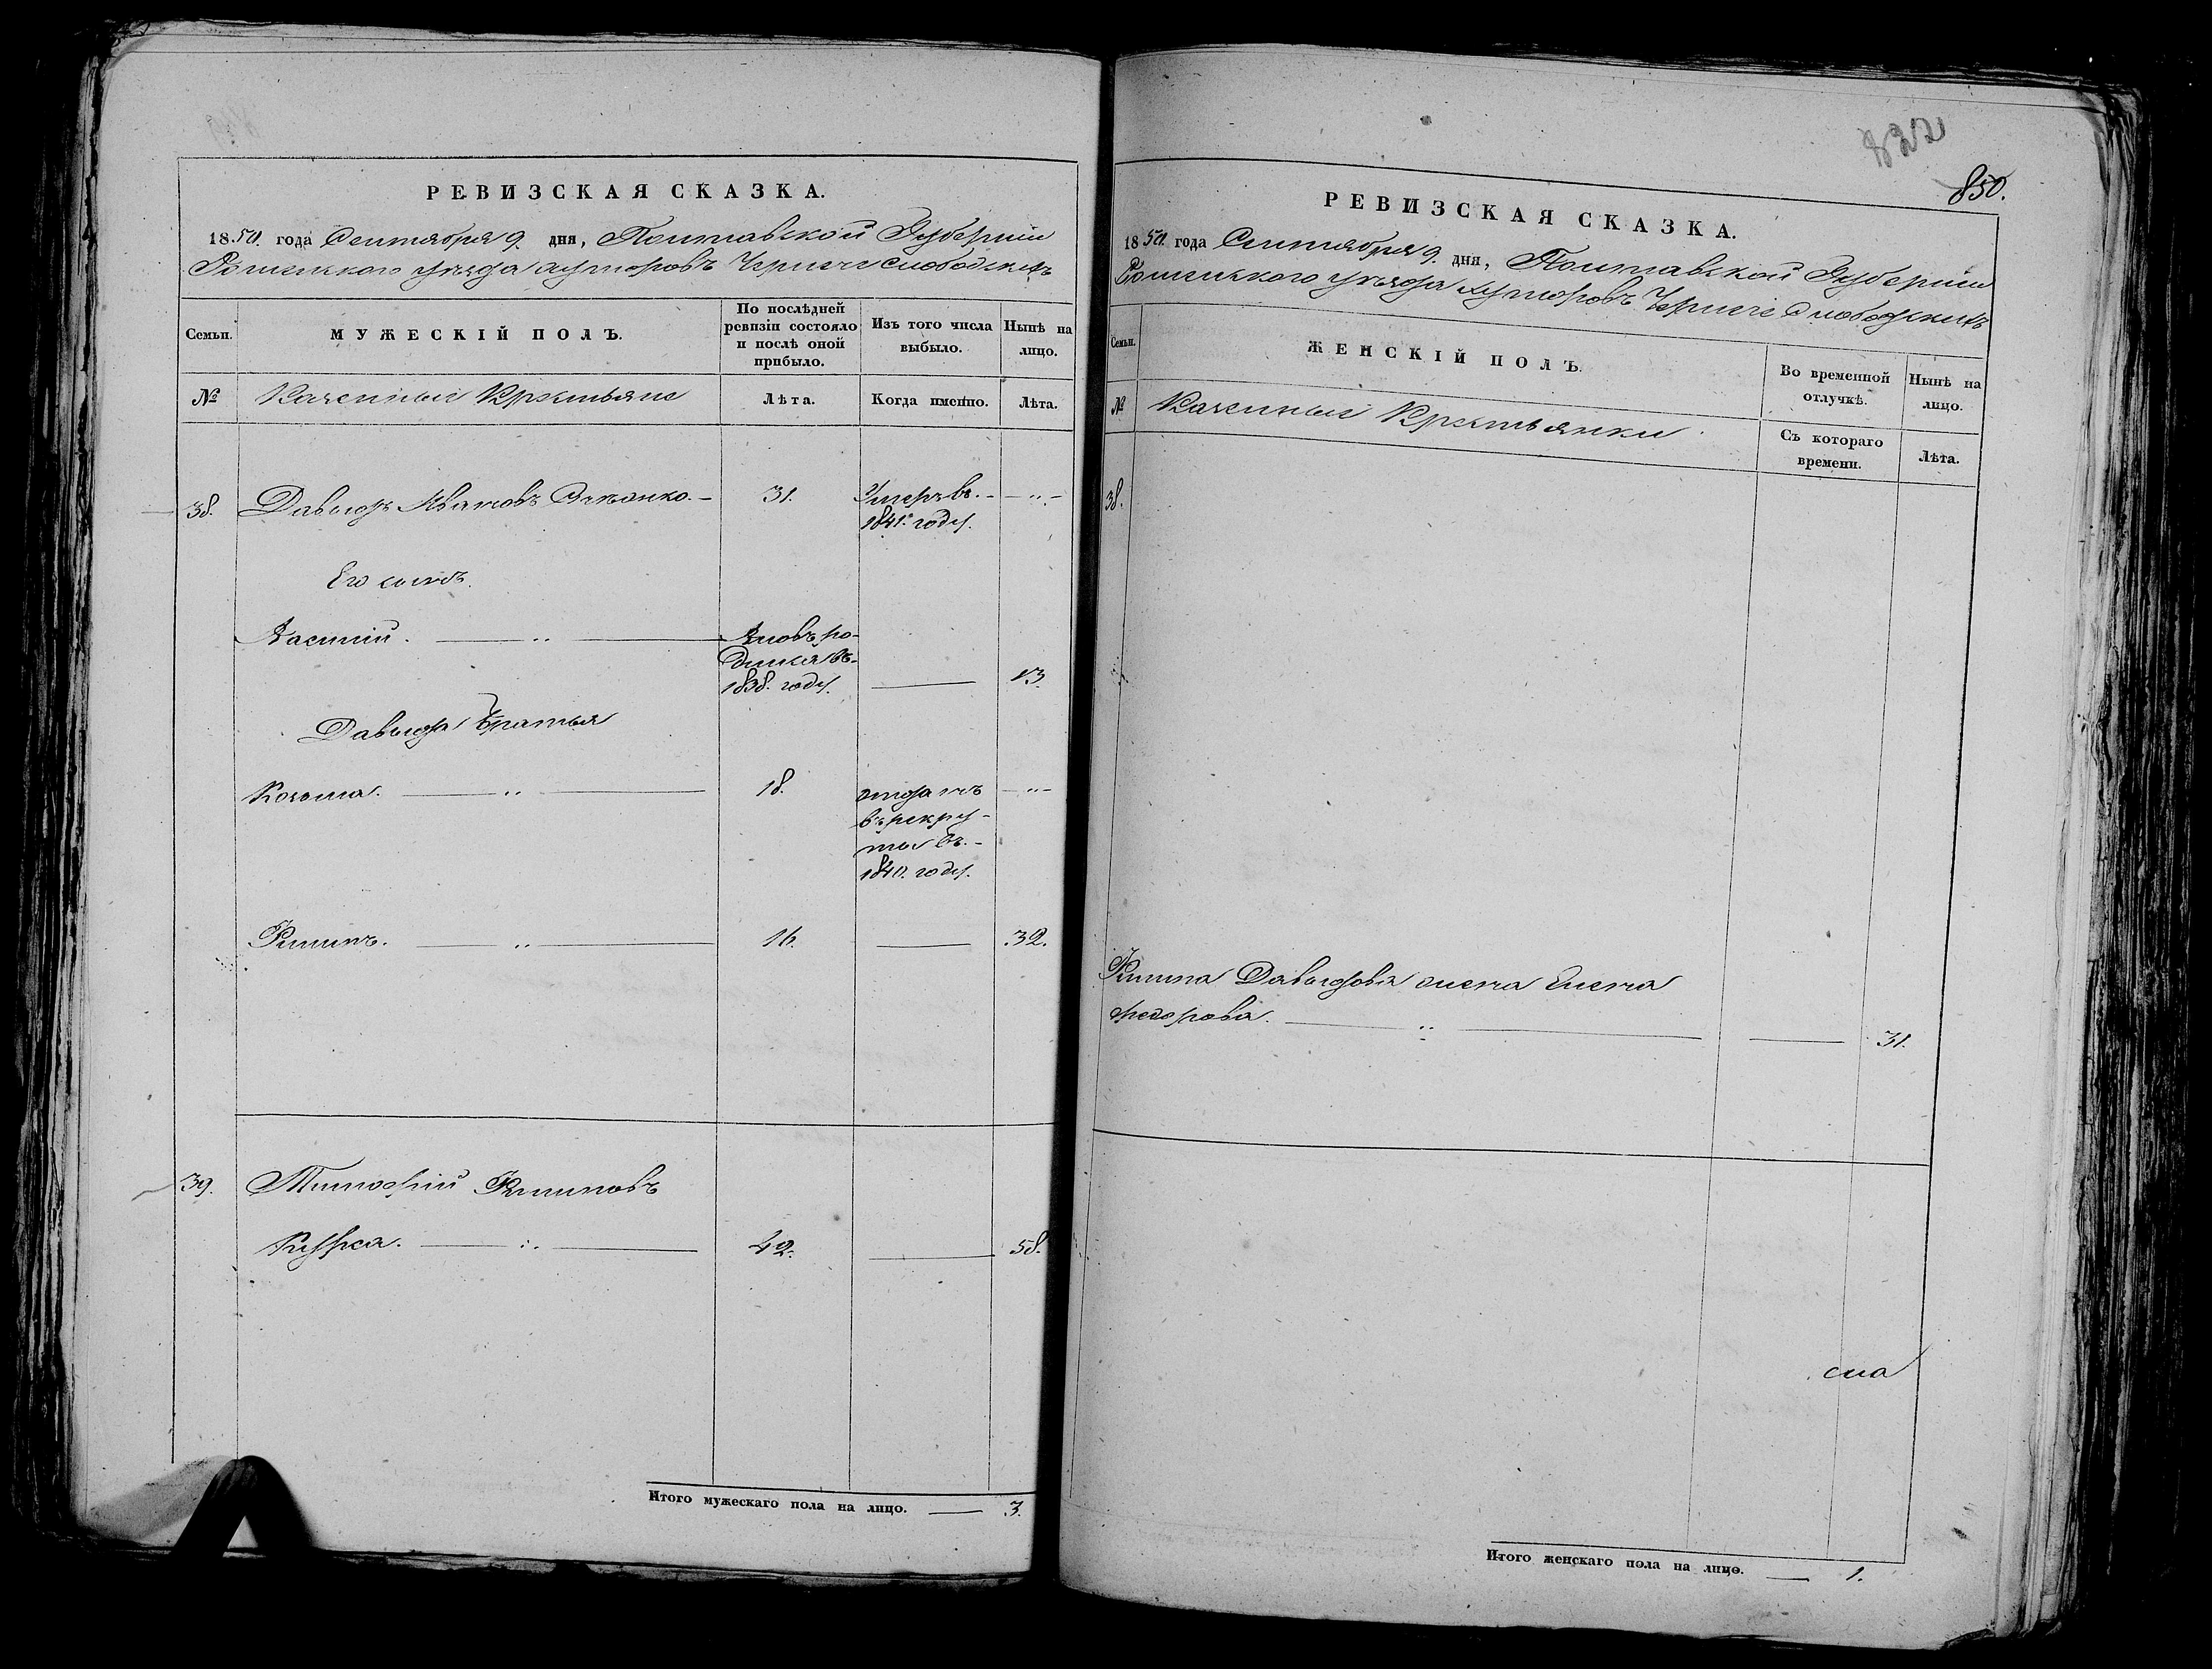 РЕВИЗСКАЯ СКАЗКА.
1850. года Сентября 9. дня, Полтавской Губерніи
Роменского уезда хуторовъ Чернечеслободскихъ
Семьи.
МУЖЕСКІЙ ПОЛЪ.
По послѣдней
ревизіи состояло
и послѣ оной
прибыло.
Изъ того числа
выбыло.
Нынѣ на
лицо.
№
Казенные Крестьяне
Лѣта.
Когда именно.
Лѣта.
38. Давыдъ Ивановъ 31. Умеръ въ
1841. году.
Его сынъ
Василій. Вновь ро-
дился въ
1838. году. 13.
Давыда братья
Козьма. 18. отданъ
въ рекру-
ты въ
1840. году.
Филипъ. 16. 32.
39. Тимофій Филиповъ
42. 58.
Итого мужескаго пола на лицо. 3.
822
850.
РЕВИЗСКАЯ СКАЗКА.
1850. года Сентября 9. дня, Полтавской Губерніи
Роменского уезда хуторовъ Чернечеслободскихъ
Семьи.
ЖЕНСКІЙ ПОЛЪ.
Во временной
отлучкѣ.
Нынѣ на
лицо.
№
Казенные Крестьянки
Съ котораго
времени.
Лѣта.
38.
Филипа Давыдова жена Елена
Федорова. 31.
Итого женскаго пола на лицо. 1.